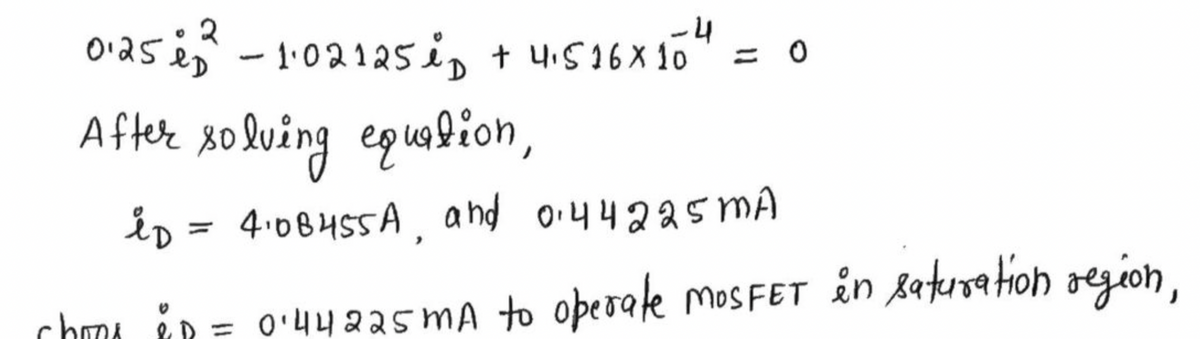 0.25 i_D^2 - 1.02125 i_D + 4.516 × 10^-4 = 0
After solving equation,
i_D = 4.08455A, and 0.44225 mA
i_D = 0.44225 mA to operate MOSFET in saturation region,